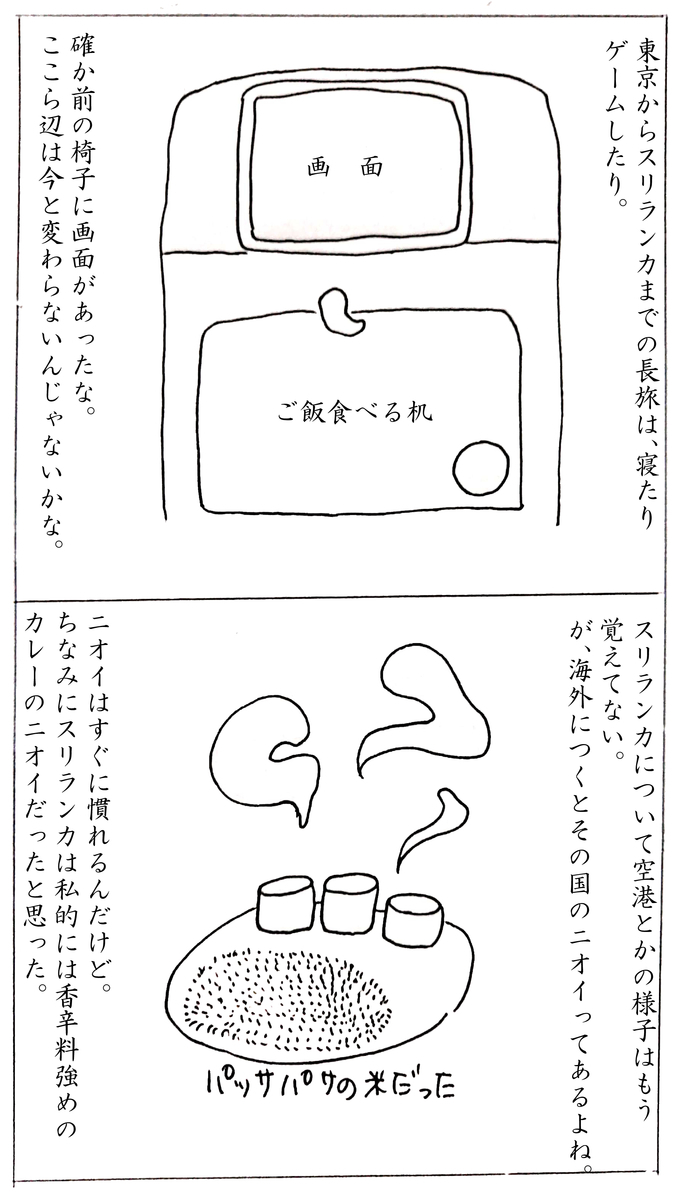 東京からスリランカまでの長旅は、寝たり
ゲームしたり。
画面
ご飯食べる机
確か前の椅子に画面があったな。
ここら辺は今と変わらないんじゃないかな。
スリランカについて空港とかの様子はもう
覚えてない。
が、海外につくとその国のニオイってあるよね。
パッサパサの米だった
ニオイはすぐに慣れるんだけど。
ちなみにスリランカは私的には香辛料強めの
カレーのニオイだったと思った。